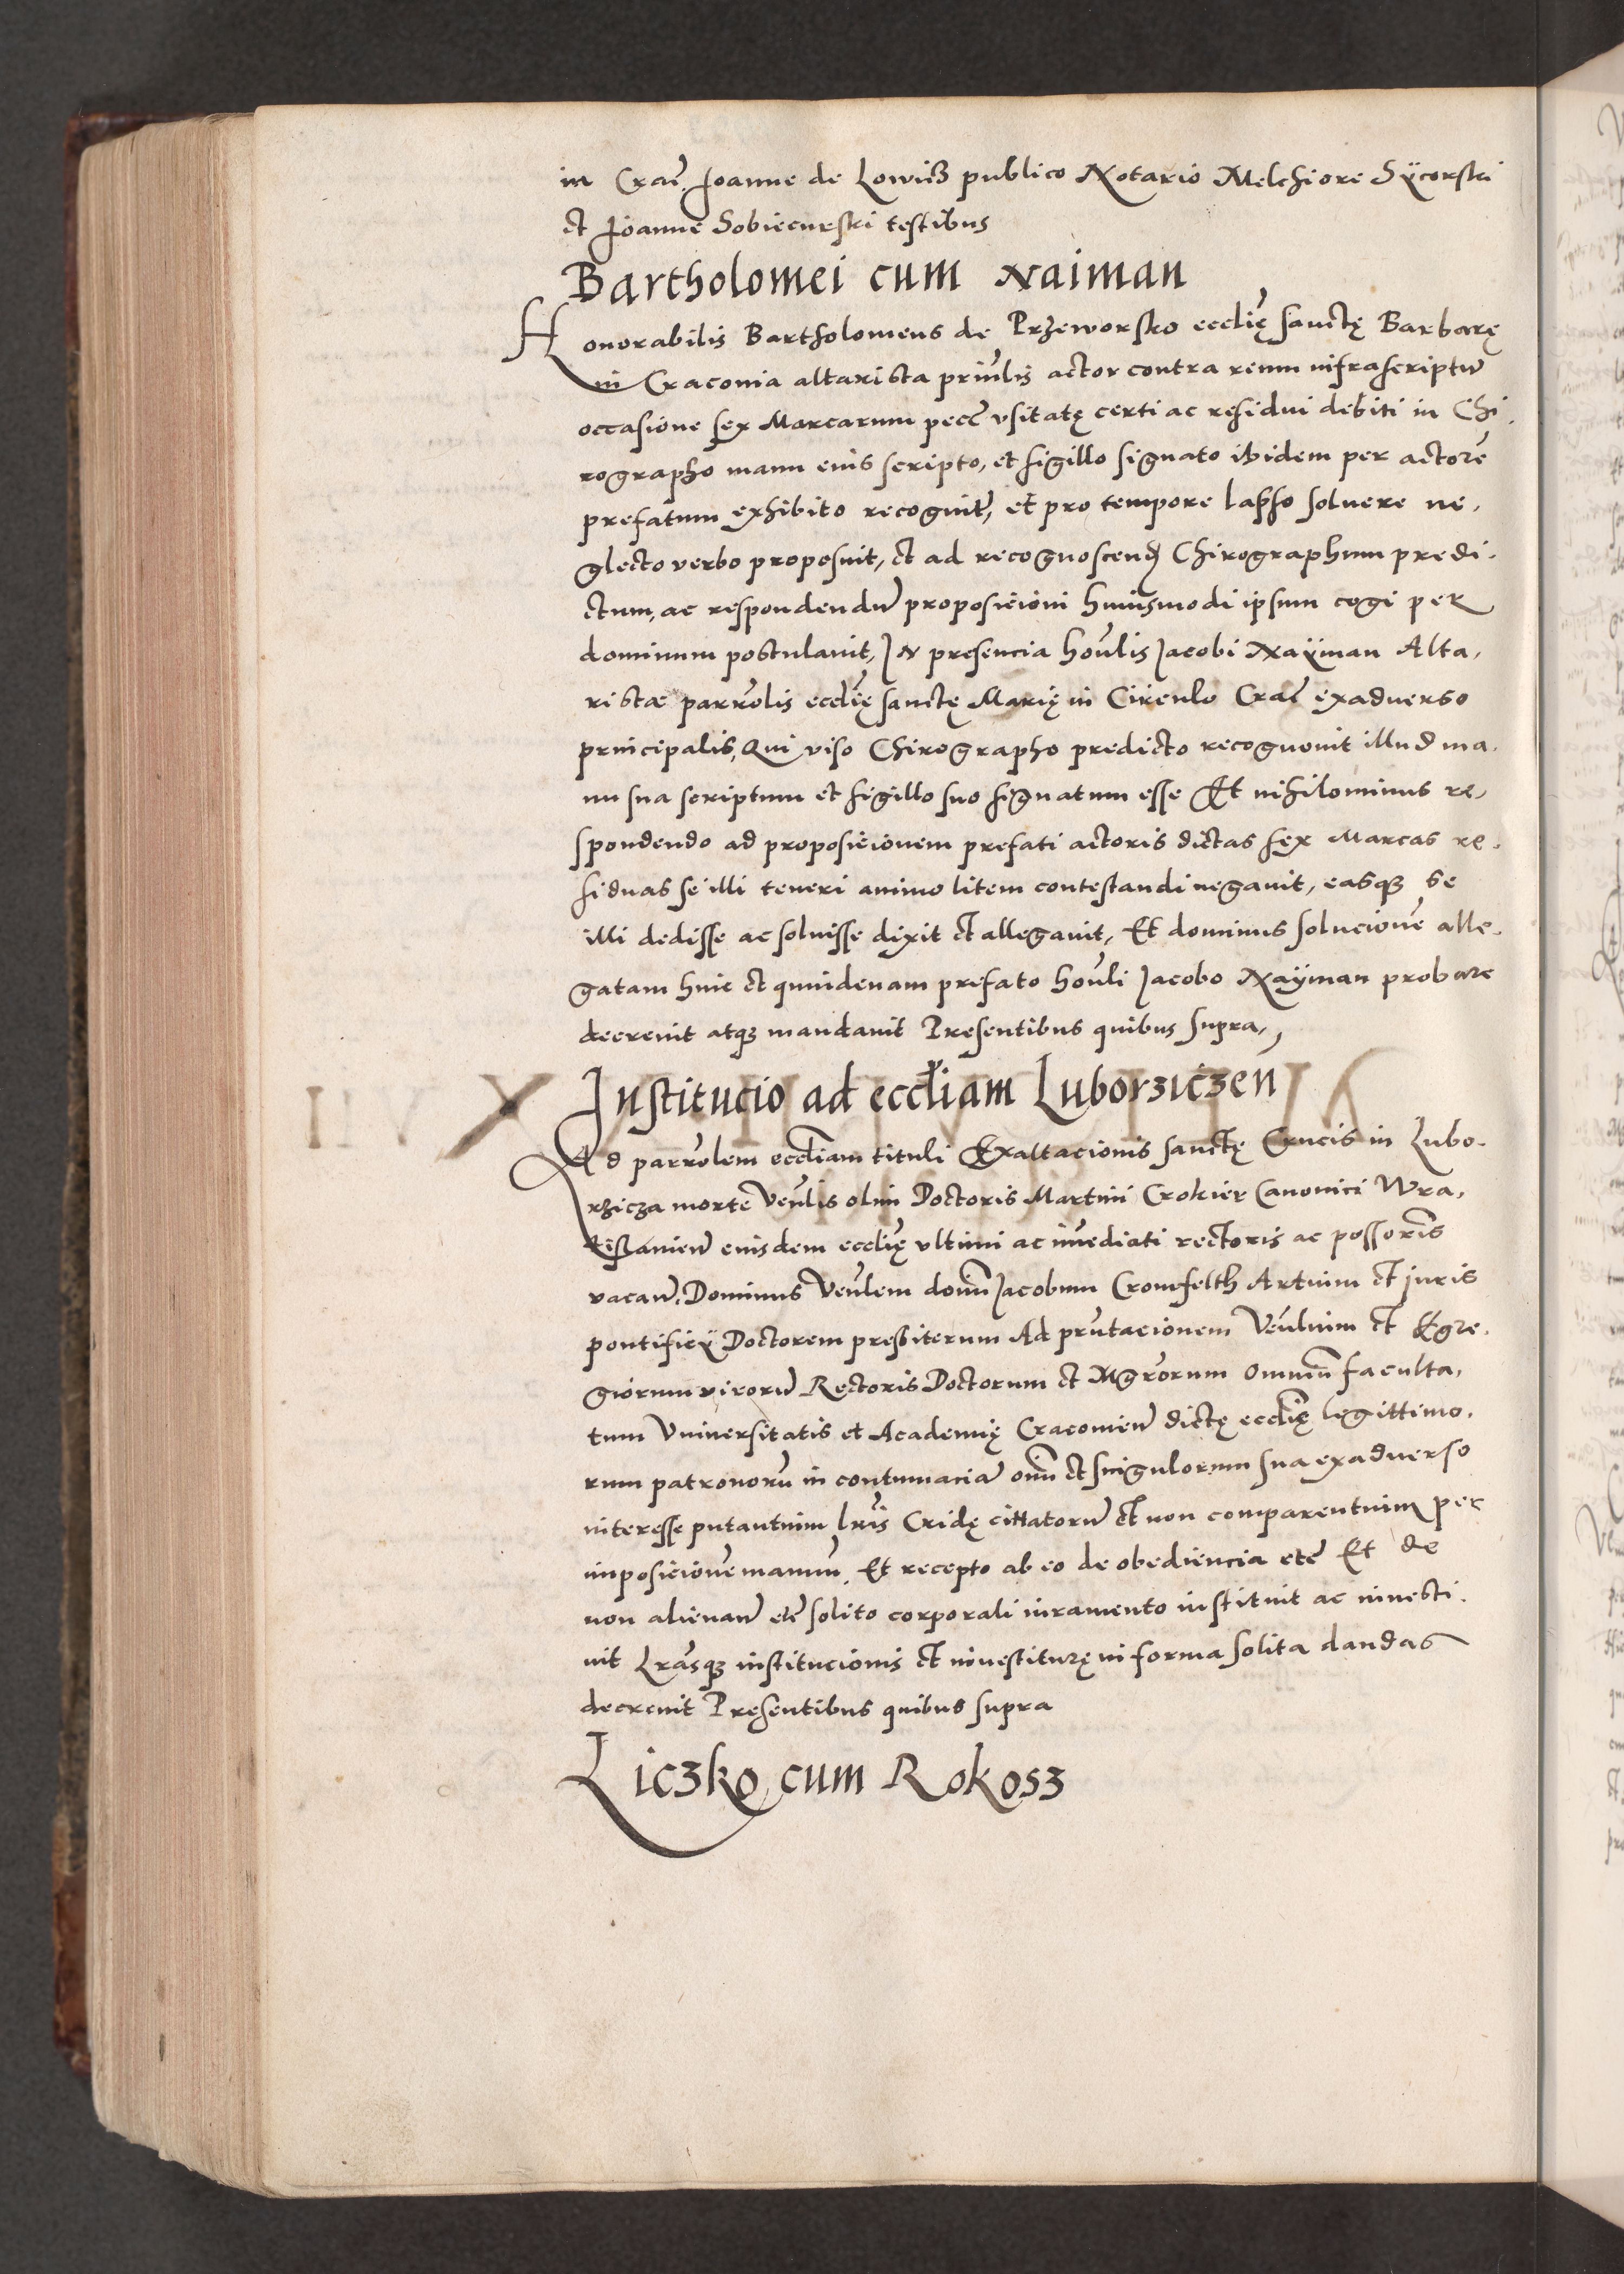 in Crac̃ Joanne de Lowicz publico Notario Melchiore Sÿcorski
et Joanne Sobiecurski testibus
Bartholomei cum Naiman
Honorabilis Bartholomeus de Przeworsko ecclię sanctę Barbarę
in Craconia altarista prinlis actor contra reum infrascriptũ
occasione sex Marcarum pecc̃ vsitatę certi ac residui debiti in Chi.
rographo manu eius scripto, et sigillo signato ibidem per actorẽ
prefatum exhibito recogniť, et pro tempore lapso soluere ne.
glecto verbo proposuit, et ad recognoscenď Chirographum predi.
ctum, ac respondendũ proposicioni huiusmodi ipsum cogi per
dominum postulauit, In presencia hon̄lis Jacobi Naÿman Alta,
ristae parrõlis ecclię sanctę Marię in Circulo Crac̃ exaduerso
principalis, Qui viso Chirographo predicto recognouit illud ma.
nu sua scriptum et sigillo suo signatum esse Et nihilominus re,
spondendo ad proposicionem prefati actoris dictas sex Marcas re.
siduas se illi teneri animo litem contestandi negauit, easqȝ se
illi dedisse ac soluisse dixit et allegauit, Et dominus solucionẽ alle.
gatam hinc et quindenam prefato hon̄li Jacobo Naÿman probare
decreuit atqȝ mandauit Presentibus quibus supra,
Institucio ad eccl̃iam Luborziczen
Ad parrõlem eccl̃iam tituli Exaltacionis sanctę Crucis in Lubo.
rzicza morte Ven̄lis olim Doctoris Martini Crokier Canonici Wra,
tislauieñ eiusdem ecclię vltimi ac im̃ediati rectoris ac possoris
vacañ, Dominus Ven̄lem domũ Jacobum Cronefelth Artium et juris
pontificÿ Doctorem presbiterum Ad prñtacionem Ven̄lium et Egre.
giorum virorũ Rectoris Doctorum et Mgr̃orum omniũ faculta,
tum Vniuersitatis et Academię Cracouieñ dictę ecclię legittimo.
rum patronorũ in contumaciã oĩm et singulorum sua exaduerso
interesse putantium lr̃is Cridę cittatorũ et non comparentium per
imposicionẽ manuũ. Et recepto ab eo de obediencia etc̃ Et de
non alienañ etc̃ solito corporali iuramento instituit ac inuesti.
uit Lr̃asqȝ institucionis et inuestiturę in forma solita dandas
decreuit Pręsentibus quibus supra
Liczko cum Rokosz